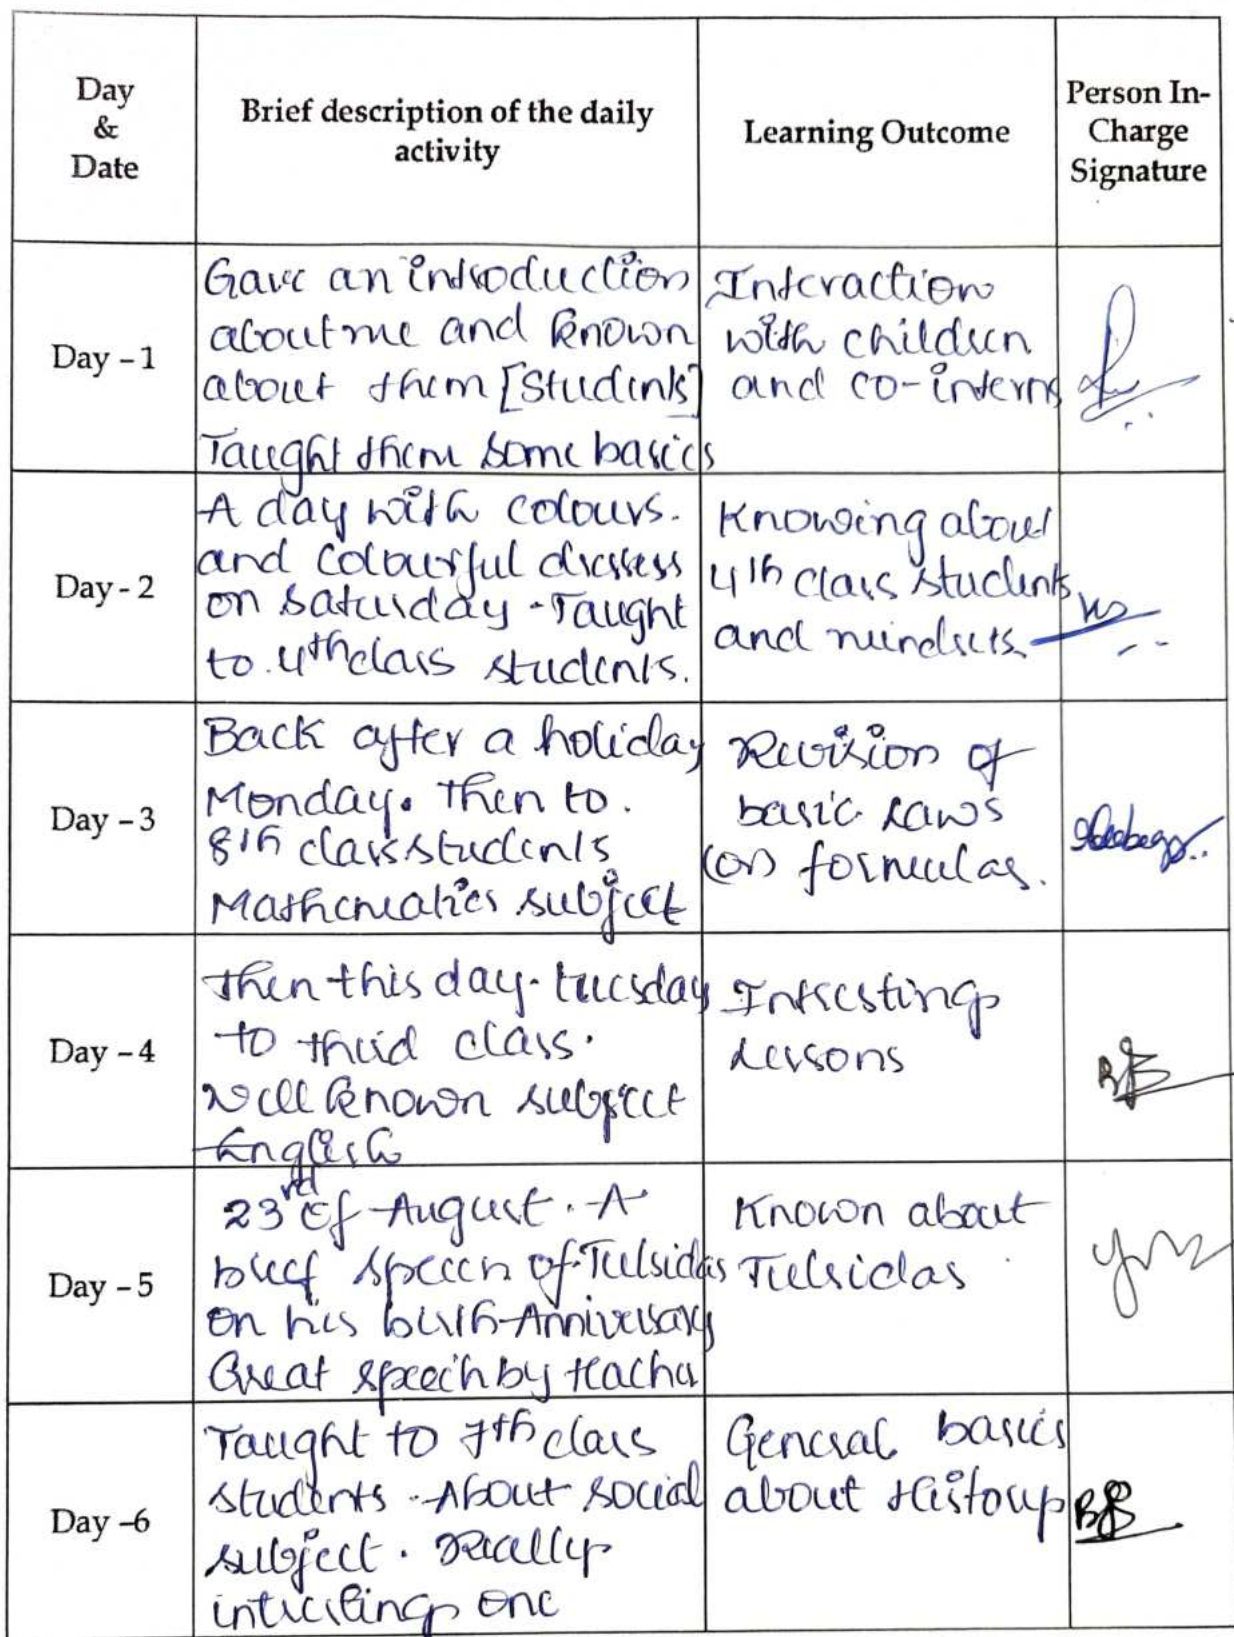 Day
&
Date
Brief description of the daily
activity
Learning Outcome
Person In-
Charge
Signature
Day - 1
Gave an introduction
about me and known
about them [Students]
Taught them some basics
Interaction
with children
and co-interns
Day - 2
A day with colours.
and colourful dresses
on saturday - Taught
to 4th class students.
Knowing about
4th class students
and mindsets.
Day - 3
Back after a holiday
Monday. Then to.
8th class students
Mathematics subject
Revision of
basic Laws
(or) formulas.
Day - 4
Then this day. tuesday
to third class.
well known subject
English
Interesting
Lessons
Day - 5
23rd of August. A
brief speech of Tulsidas
on his birth Anniversary
Great speech by teacher
Known about
Tulsidas
Day -6
Taught to 7th class
students. About social
subject. Really
interesting one
General basics
about History